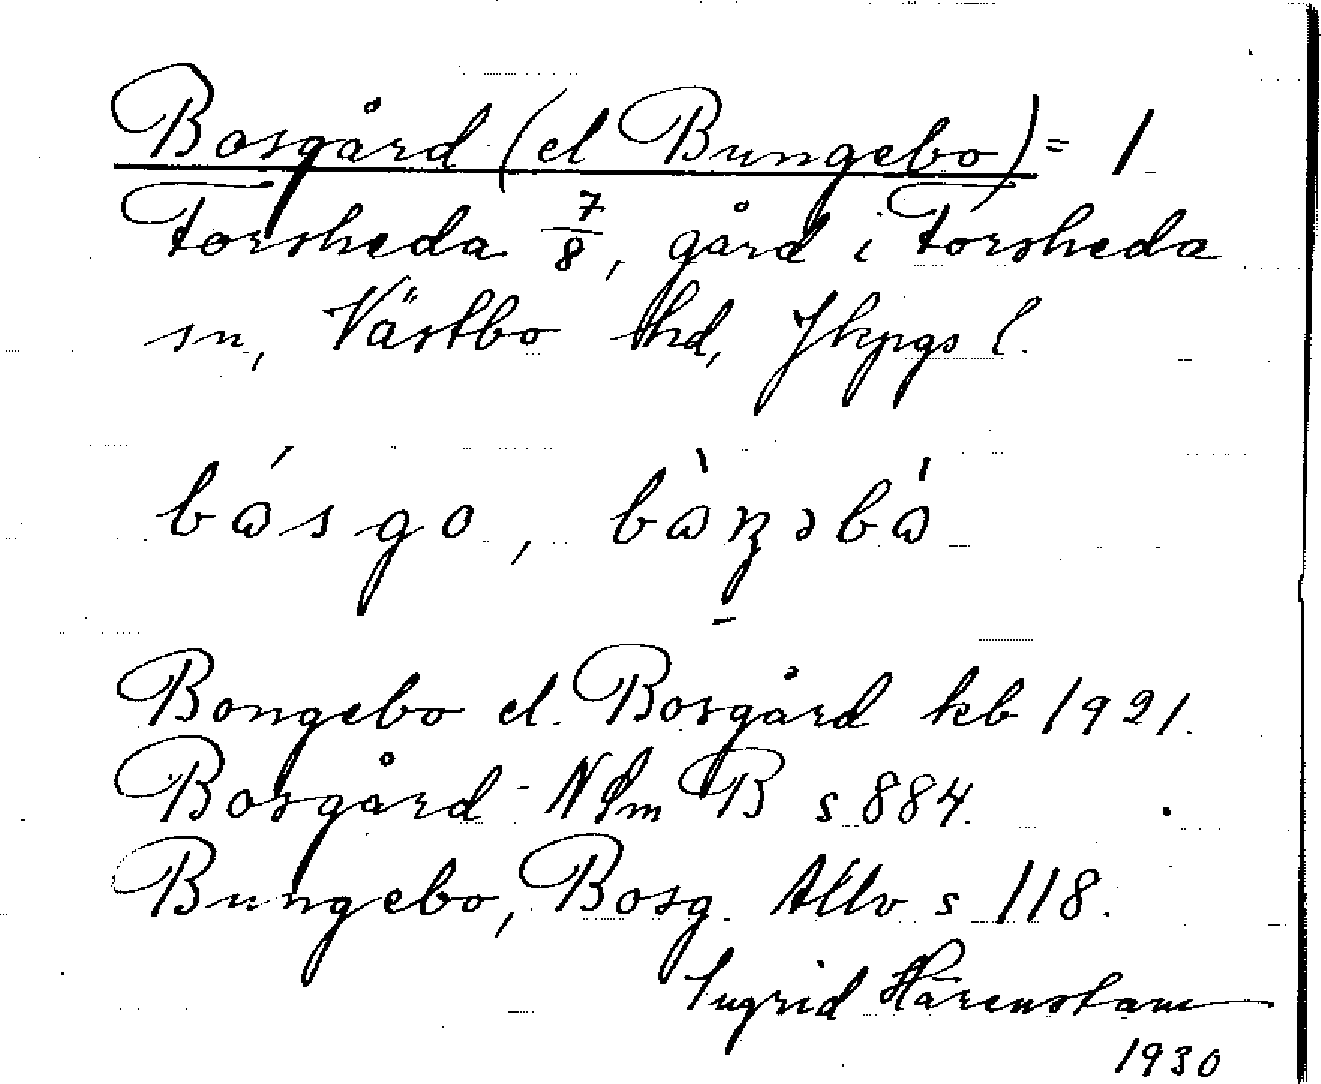 Bosgård (el Bungebo) = 1
Torsheda 7/8, gård i Torsheda
sn, Västbo hd, Jkpgs l.
bósgo, bòŋəbó
Bongebo el. Bosgård kb 1921.
Bosgård NSm B s 884.
Bungebo, Bosg. Allv s 118.
Ingrid Härenstam
1930